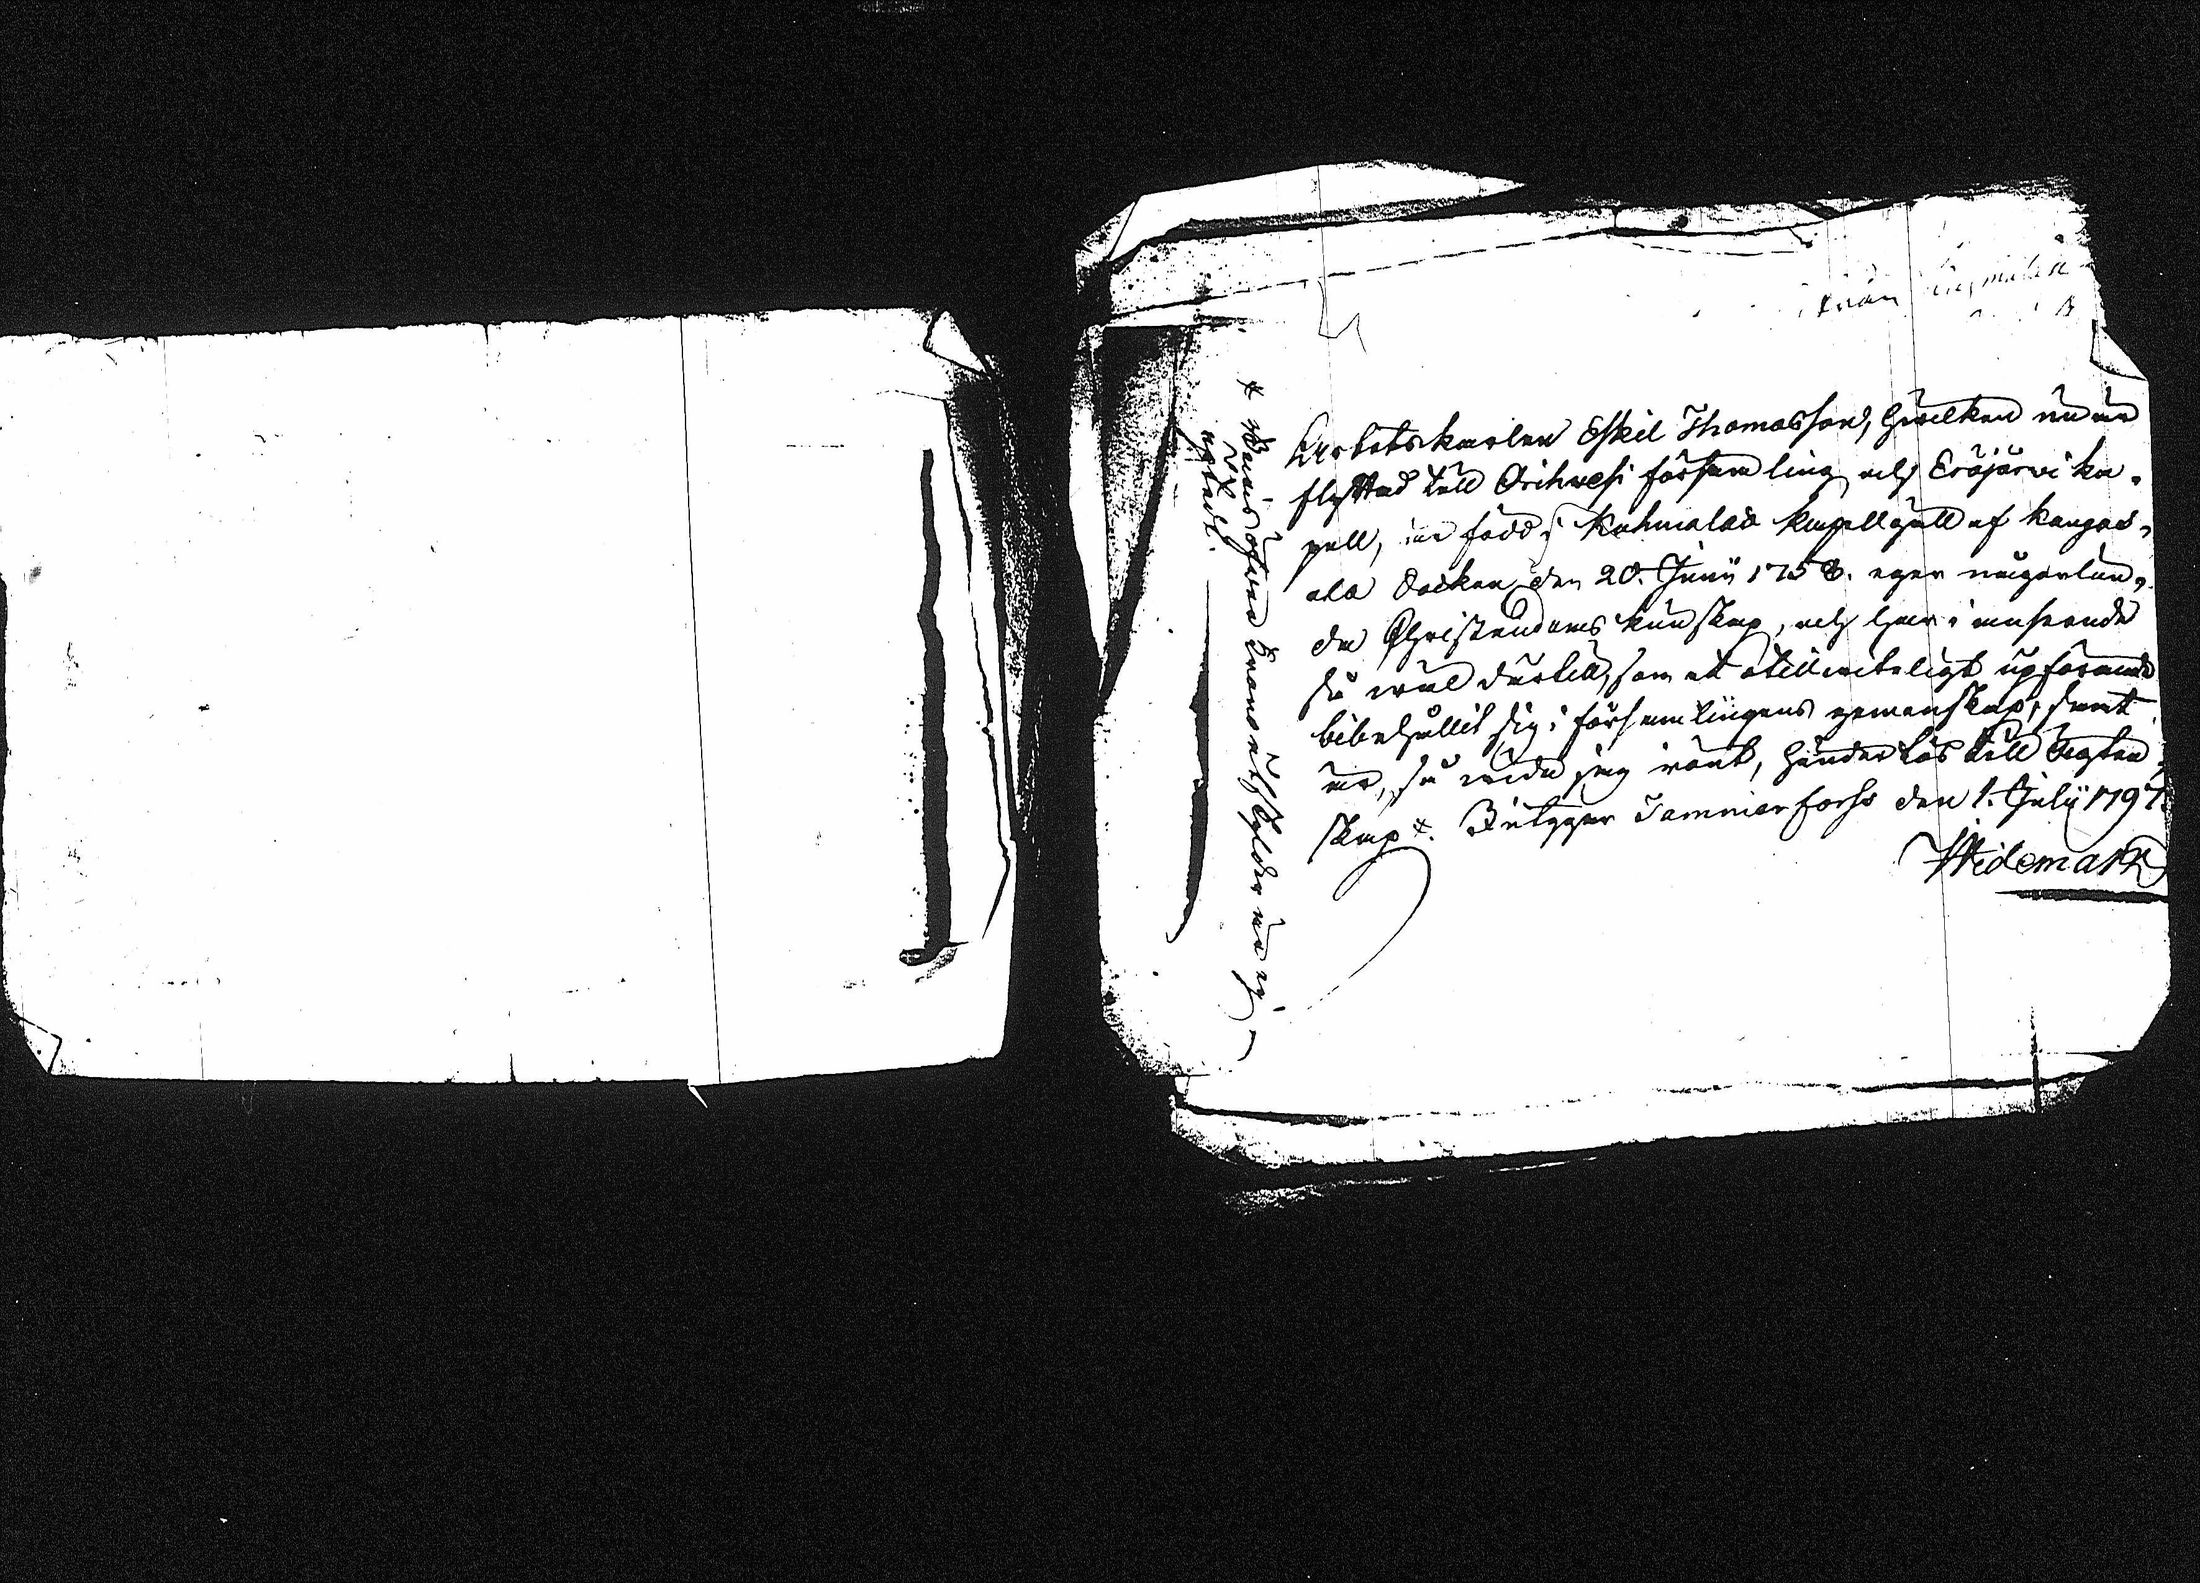 Arbetskarlen Eskil Thomasson, hwilken nu är
flyttad till Orihvesi församling och Eräjärvi ka-
pell, är född i Kuhmalax kapellgäll af Kangas-
ala Socken den 20. Junii 1758. eger någorlun-
da Christendoms kunskap, och har i anseende
så wäl dertill, som ett otillwiteligt upförande
bibehållit sig i församlingens gemenskap, samt
är, så wida jag wönt, hinderlös till ägten-
skap #. Tammerforss den 1. Julii 1797
Widemark
# Bewis öfver Krono utskylder
upteedt.